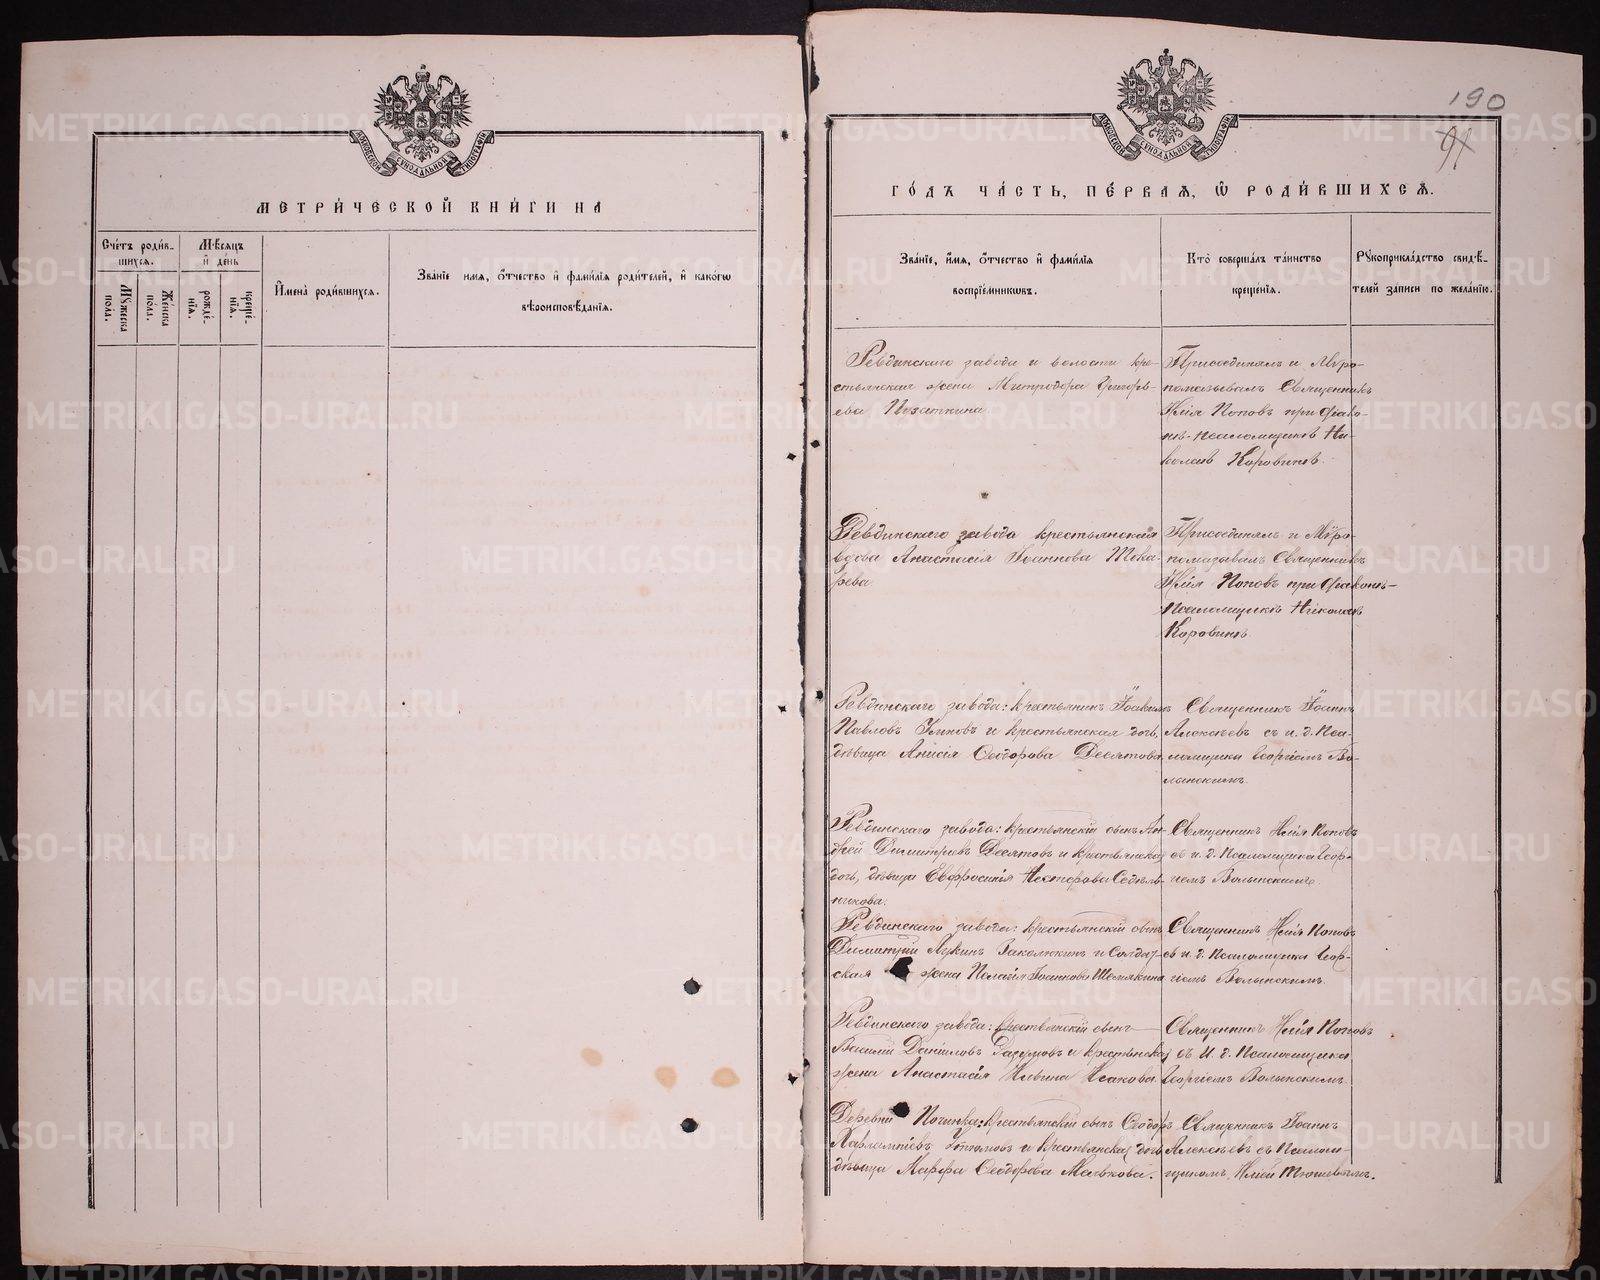 МЕТРИ́ЧЕСКОЙ КНИ́ГИ НА
Сче́тъ роди́в-
шихся.
Мѣсяцъ
и҆ де́нь
Мꙋжеска
по́ла.
Же́нска
по́ла.
рожде́-
нїя.
креще́-
нїя.
И҆мена̀ роди́вшихся.
Зва́нїе имя, ѻ҆́тчество и҆ фами́лїя роди́телей, и҆ како́гѡ
вѣроисповѣ́данїя.
190
91
ГО́ДЪ ЧА́СТЬ, ПЕ́РВАЯ, Ѽ РОДИ́ВШИХСЯ.
Зва́нїе, и҆́мя, ѻ҆́тчество и҆ фами́лїя
воспрїе́мникѡвъ.
Кто̀ соверша́лъ та́инство
креще́нїя.
Рꙋкоприкла́дство свидѣ́-
телей за́писи по жела́нїю.
Ревдинскаго завода и волости кре-
стьянская жена Митродора Григорь-
ева Пузаткина.
Присоединялъ и Мѵро-
помазывалъ Священникъ
Илія Поповъ при діако-
нѣ-псаломщикѣ Ни-
колаѣ Коровинѣ.
Ревдинскаго завода крестьянская
вдова Анастасія Іоаннова Шека-
рева.
Присоединялъ и Мѵро-
помазывалъ Священникъ
Илія Поповъ при діаконѣ-
Псаломщикѣ Николаѣ
Коровинѣ.
Ревдинскаго завода: крестьянинъ
Павловъ и крестьянская дочь,
дѣвица Анисія Ѳеодорова Десятова.
Священникъ Іоаннъ
Алексѣевъ съ и. д. Пса-
ломщика Георгіемъ Во-
лынскимъ.
Ревдинскаго завода: крестьянскій сынъ Ан-
дрей Димитріевъ Десятовъ и крестьянская
дочь, дѣвица Евфросинія Нестерова Седель-
никова.
Священникъ Илія Поповъ
съ и. д. Псаломщика Геор-
гіемъ Волынскимъ.
Ревдинскаго завода: крестьянскій сынъ
Димитрій Лукинъ Заколюкинъ и Солдат-
ская жена Пелагія Іоаннова Шемякина
Священникъ Илія Поповъ
съ и. д. Псаломщика Геор-
гіемъ Волынскимъ.
Ревдинскаго завода: крестьянскій сынъ
Василій Даніиловъ и крестьянская
жена Анастасія Ильина Исакова.
Священникъ Илія Поповъ
съ И. д. Псаломщика
Георгіемъ Волынскимъ.
Деревни Починка: крестьянскій сынъ Ѳеодоръ
Харлампіевъ и крестьянская дочь
дѣвица Марфа Ѳеодорова Малькова.
Священникъ Іоаннъ
Алексѣевъ съ Псалом-
щикомъ Иліей Тюшевымъ.
METRIKI.GASO-URAL.RU